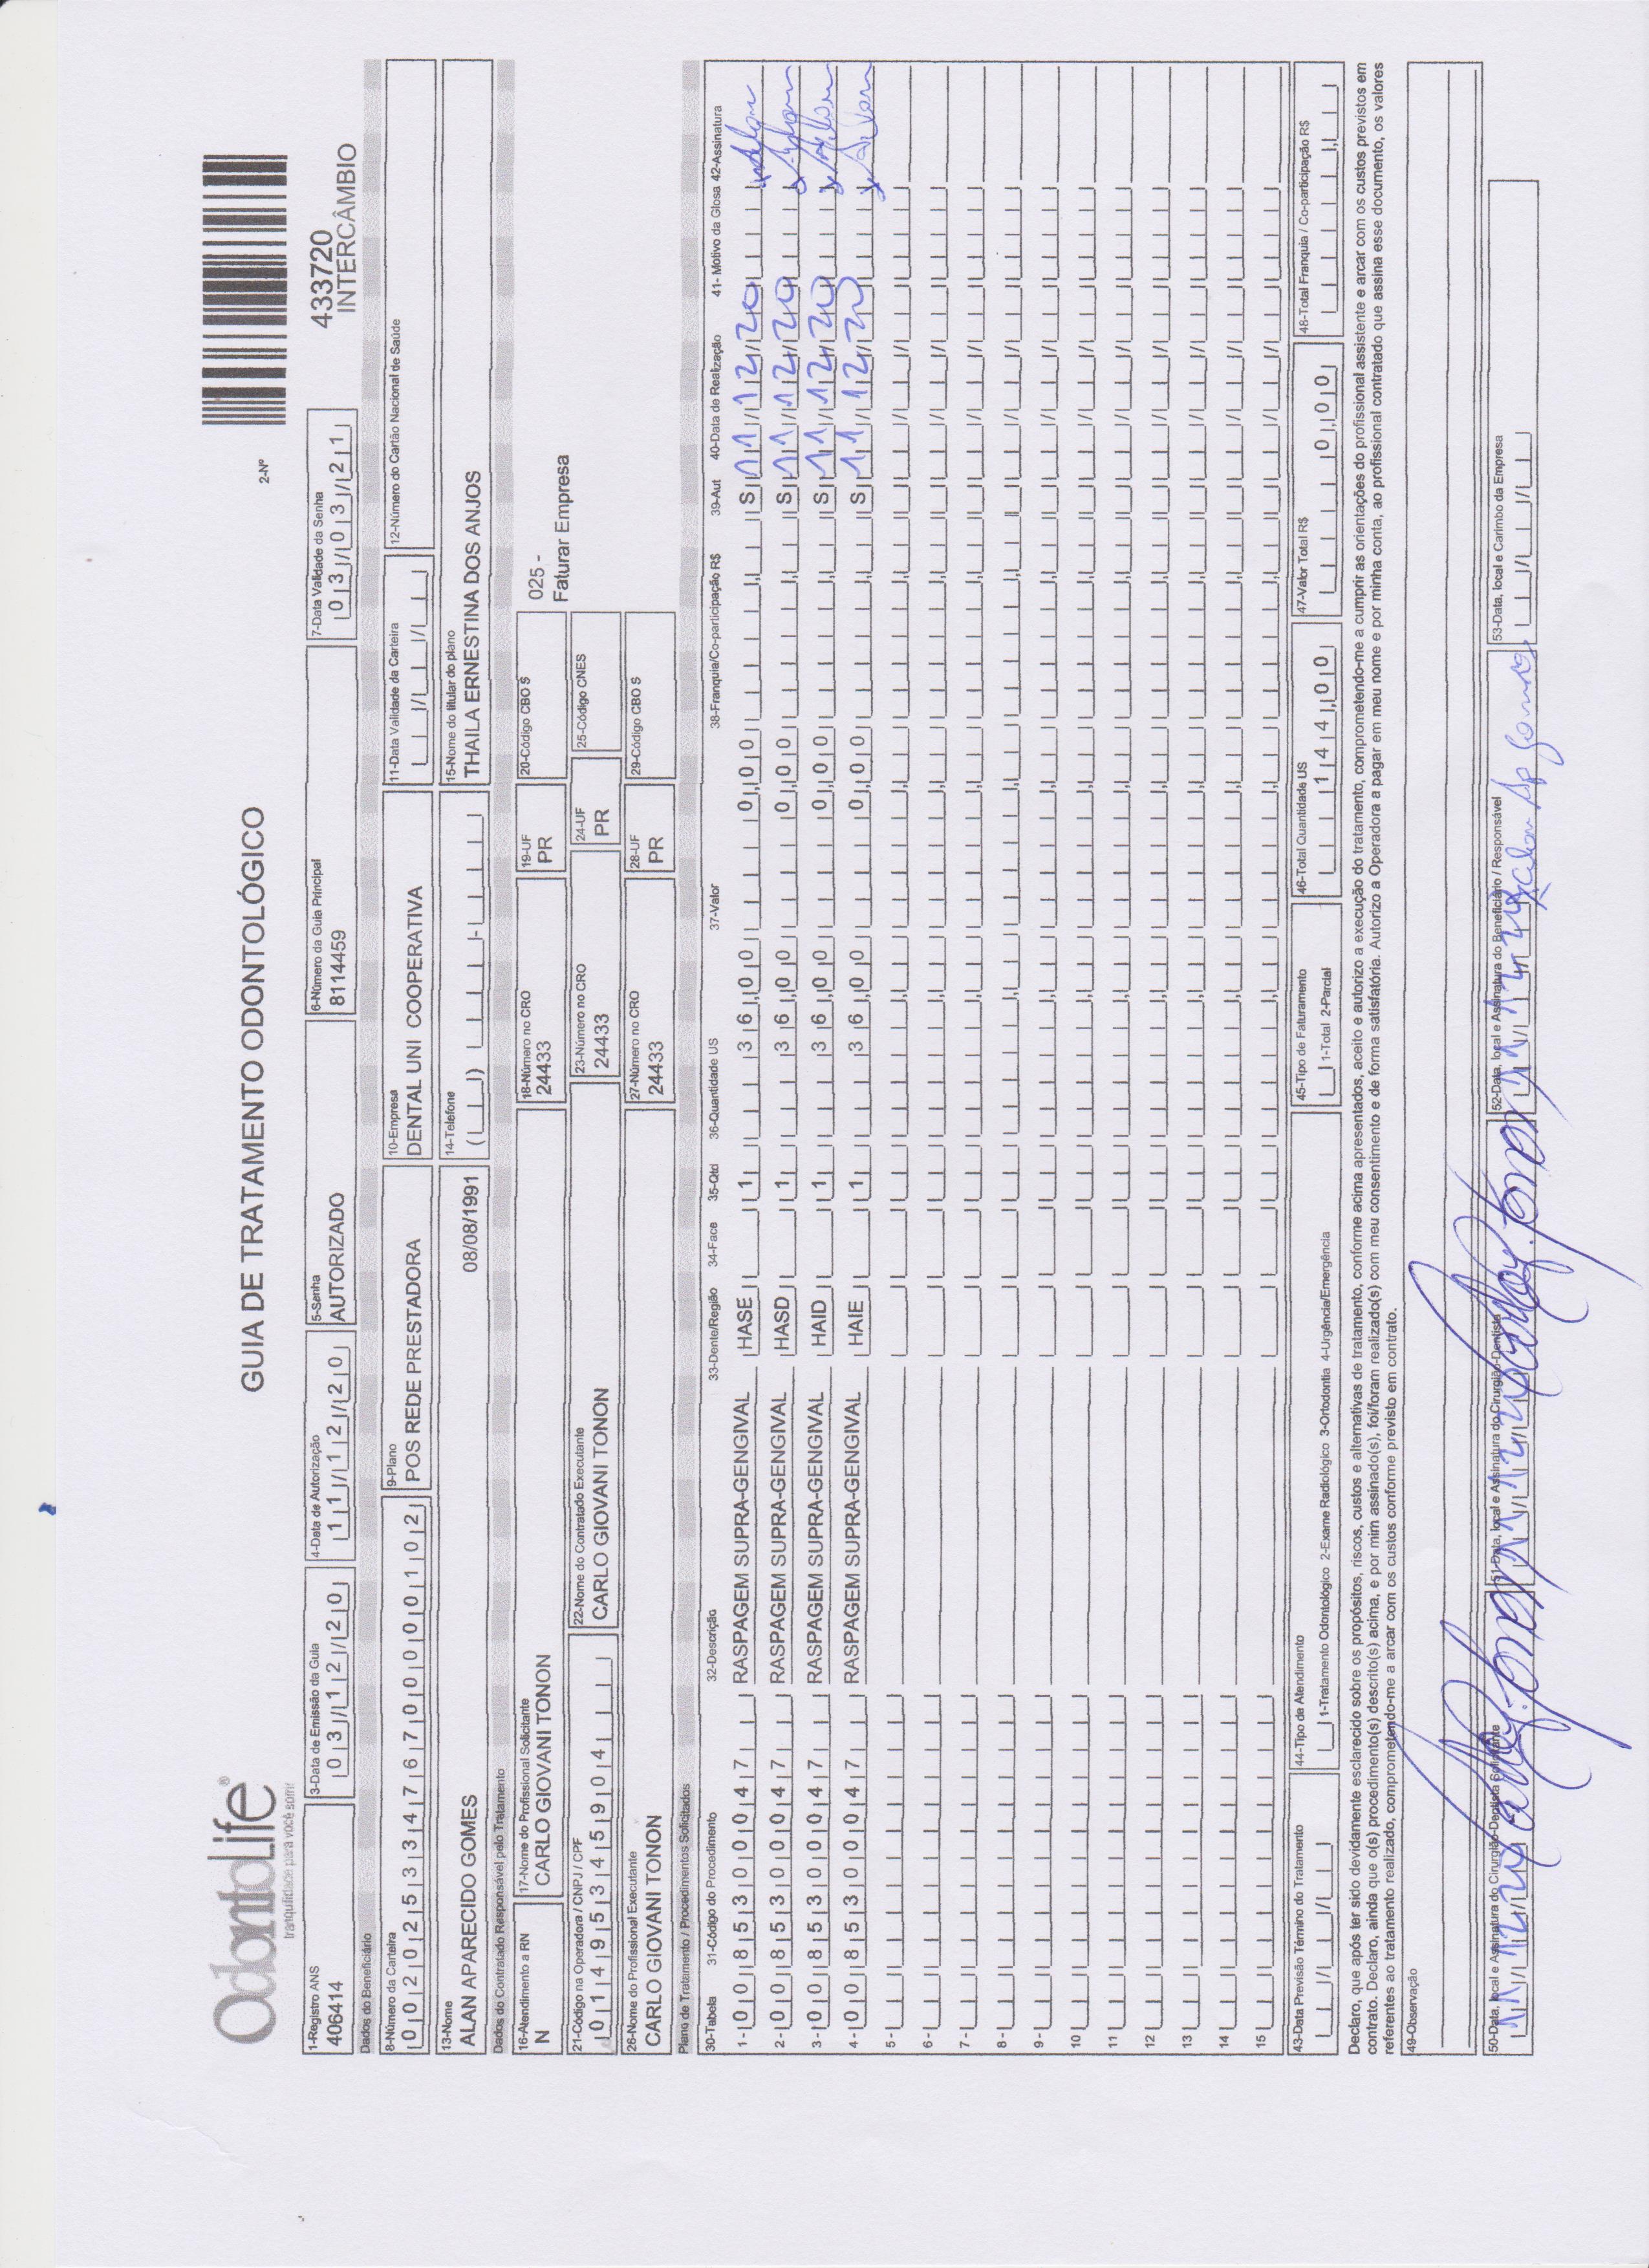 OdontoLife®
tranquilidade para você sorrir
GUIA DE TRATAMENTO ODONTOLÓGICO
2-Nº
433720
INTERCÂMBIO
1-Registro ANS
406414
3-Data de Emissão da Guia
03/12/20
4-Data de Autorização
11/12/20
5-Senha
AUTORIZADO
6-Número da Guia Principal
8114459
7-Data Validade da Senha
03/03/21
Dados do Beneficiário
8-Número da Carteira
00202533476700000102
9-Plano
POS REDE PRESTADORA
10-Empresa
DENTAL UNI COOPERATIVA
11-Data Validade da Carteira
12-Número do Cartão Nacional de Saúde
13-Nome
ALAN APARECIDO GOMES
08/08/1991
14-Telefone
15-Nome do titular do plano
THAILA ERNESTINA DOS ANJOS
Dados do Contratado Responsável pelo Tratamento
16-Atendimento a RN
N
17-Nome do Profissional Solicitante
CARLO GIOVANI TONON
18-Número no CRO
24433
19-UF
PR
20-Código CBO S
025 -
Faturar Empresa
21-Código na Operadora / CNPJ / CPF
01495345904
22-Nome do Contratado Executante
CARLO GIOVANI TONON
23-Número no CRO
24433
24-UF
PR
25-Código CNES
26-Nome do Profissional Executante
CARLO GIOVANI TONON
27-Número no CRO
24433
28-UF
PR
29-Código CBO S
Plano de Tratamento / Procedimentos Solicitados
30-Tabela 31-Código do Procedimento 32-Descrição 33-Dente/Região 34-Face 35-Qtd 36-Quantidade US 37-Valor 38-Franquia/Co-participação R$ 39-Aut 40-Data de Realização 41- Motivo da Glosa 42-Assinatura
1 - 00 85300047 RASPAGEM SUPRA-GENGIVAL HASE 1 36,00 0,00 S 11/12/20
2 - 00 85300047 RASPAGEM SUPRA-GENGIVAL HASD 1 36,00 0,00 S 11/12/20
3 - 00 85300047 RASPAGEM SUPRA-GENGIVAL HAID 1 36,00 0,00 S 11/12/20
4 - 00 85300047 RASPAGEM SUPRA-GENGIVAL HAIE 1 36,00 0,00 S 11/12/20
5 -
6 -
7 -
8 -
9 -
10
11
12
13
14
15
43-Data Previsão Término do Tratamento
44-Tipo de Atendimento
1-Tratamento Odontológico 2-Exame Radiológico 3-Ortodontia 4-Urgência/Emergência
45-Tipo de Faturamento
1-Total 2-Parcial
46-Total Quantidade US
144,00
47-Valor Total R$
0,00
48-Total Franquia / Co-participação R$
Declaro, que após ter sido devidamente esclarecido sobre os propósitos, riscos, custos e alternativas de tratamento, conforme acima apresentados, aceito e autorizo a execução do tratamento, comprometendo-me a cumprir as orientações do profissional assistente e arcar com os custos previstos em
contrato. Declaro, ainda que o(s) procedimento(s) descrito(s) acima, e por mim assinado(s), foi/foram realizado(s) com meu consentimento e de forma satisfatória. Autorizo a Operadora a pagar em meu nome e por minha conta, ao profissional contratado que assina esse documento, os valores
referentes ao tratamento realizado, comprometendo-me a arcar com os custos conforme previsto em contrato.
49-Observação
50-Data, local e Assinatura do Cirurgião-Dentista Solicitante
11/12/20
51-Data, local e Assinatura do Cirurgião-Dentista
11/12/20
52-Data, local e Assinatura do Beneficiário / Responsável
11/12/20
53-Data, local e Carimbo da Empresa